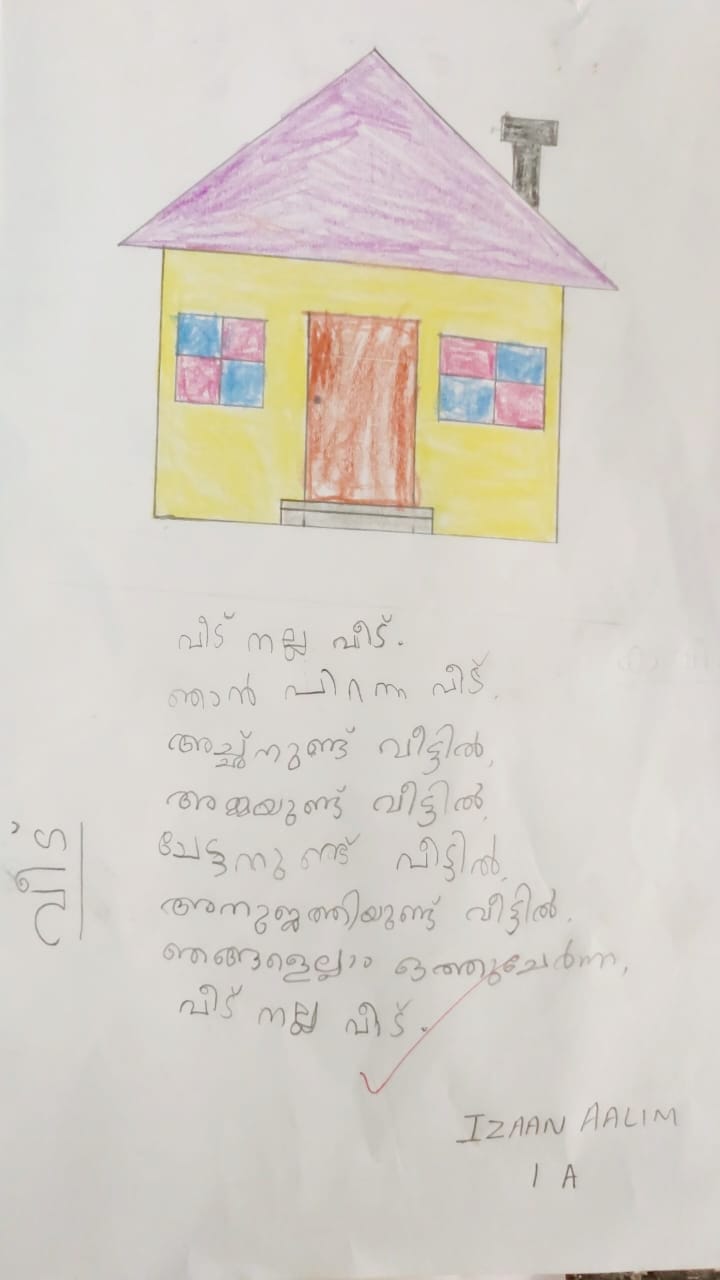 വീട് നല്ല വീട്.
ഞാൻ പിറന്ന വീട്.
അച്ഛ്നുണ്ട് വീട്ടിൽ,
അമ്മയുണ്ട് വീട്ടിൽ,
ചേട്ടനുണ്ട് വീട്ടിൽ,
അനുജത്തിയുണ്ട് വീട്ടിൽ.
ഞങ്ങളെല്ലാം ഒത്തുചേർന്ന,
വീട് നല്ല വീട്.
വീട്
IZAAN AALIM
1 A